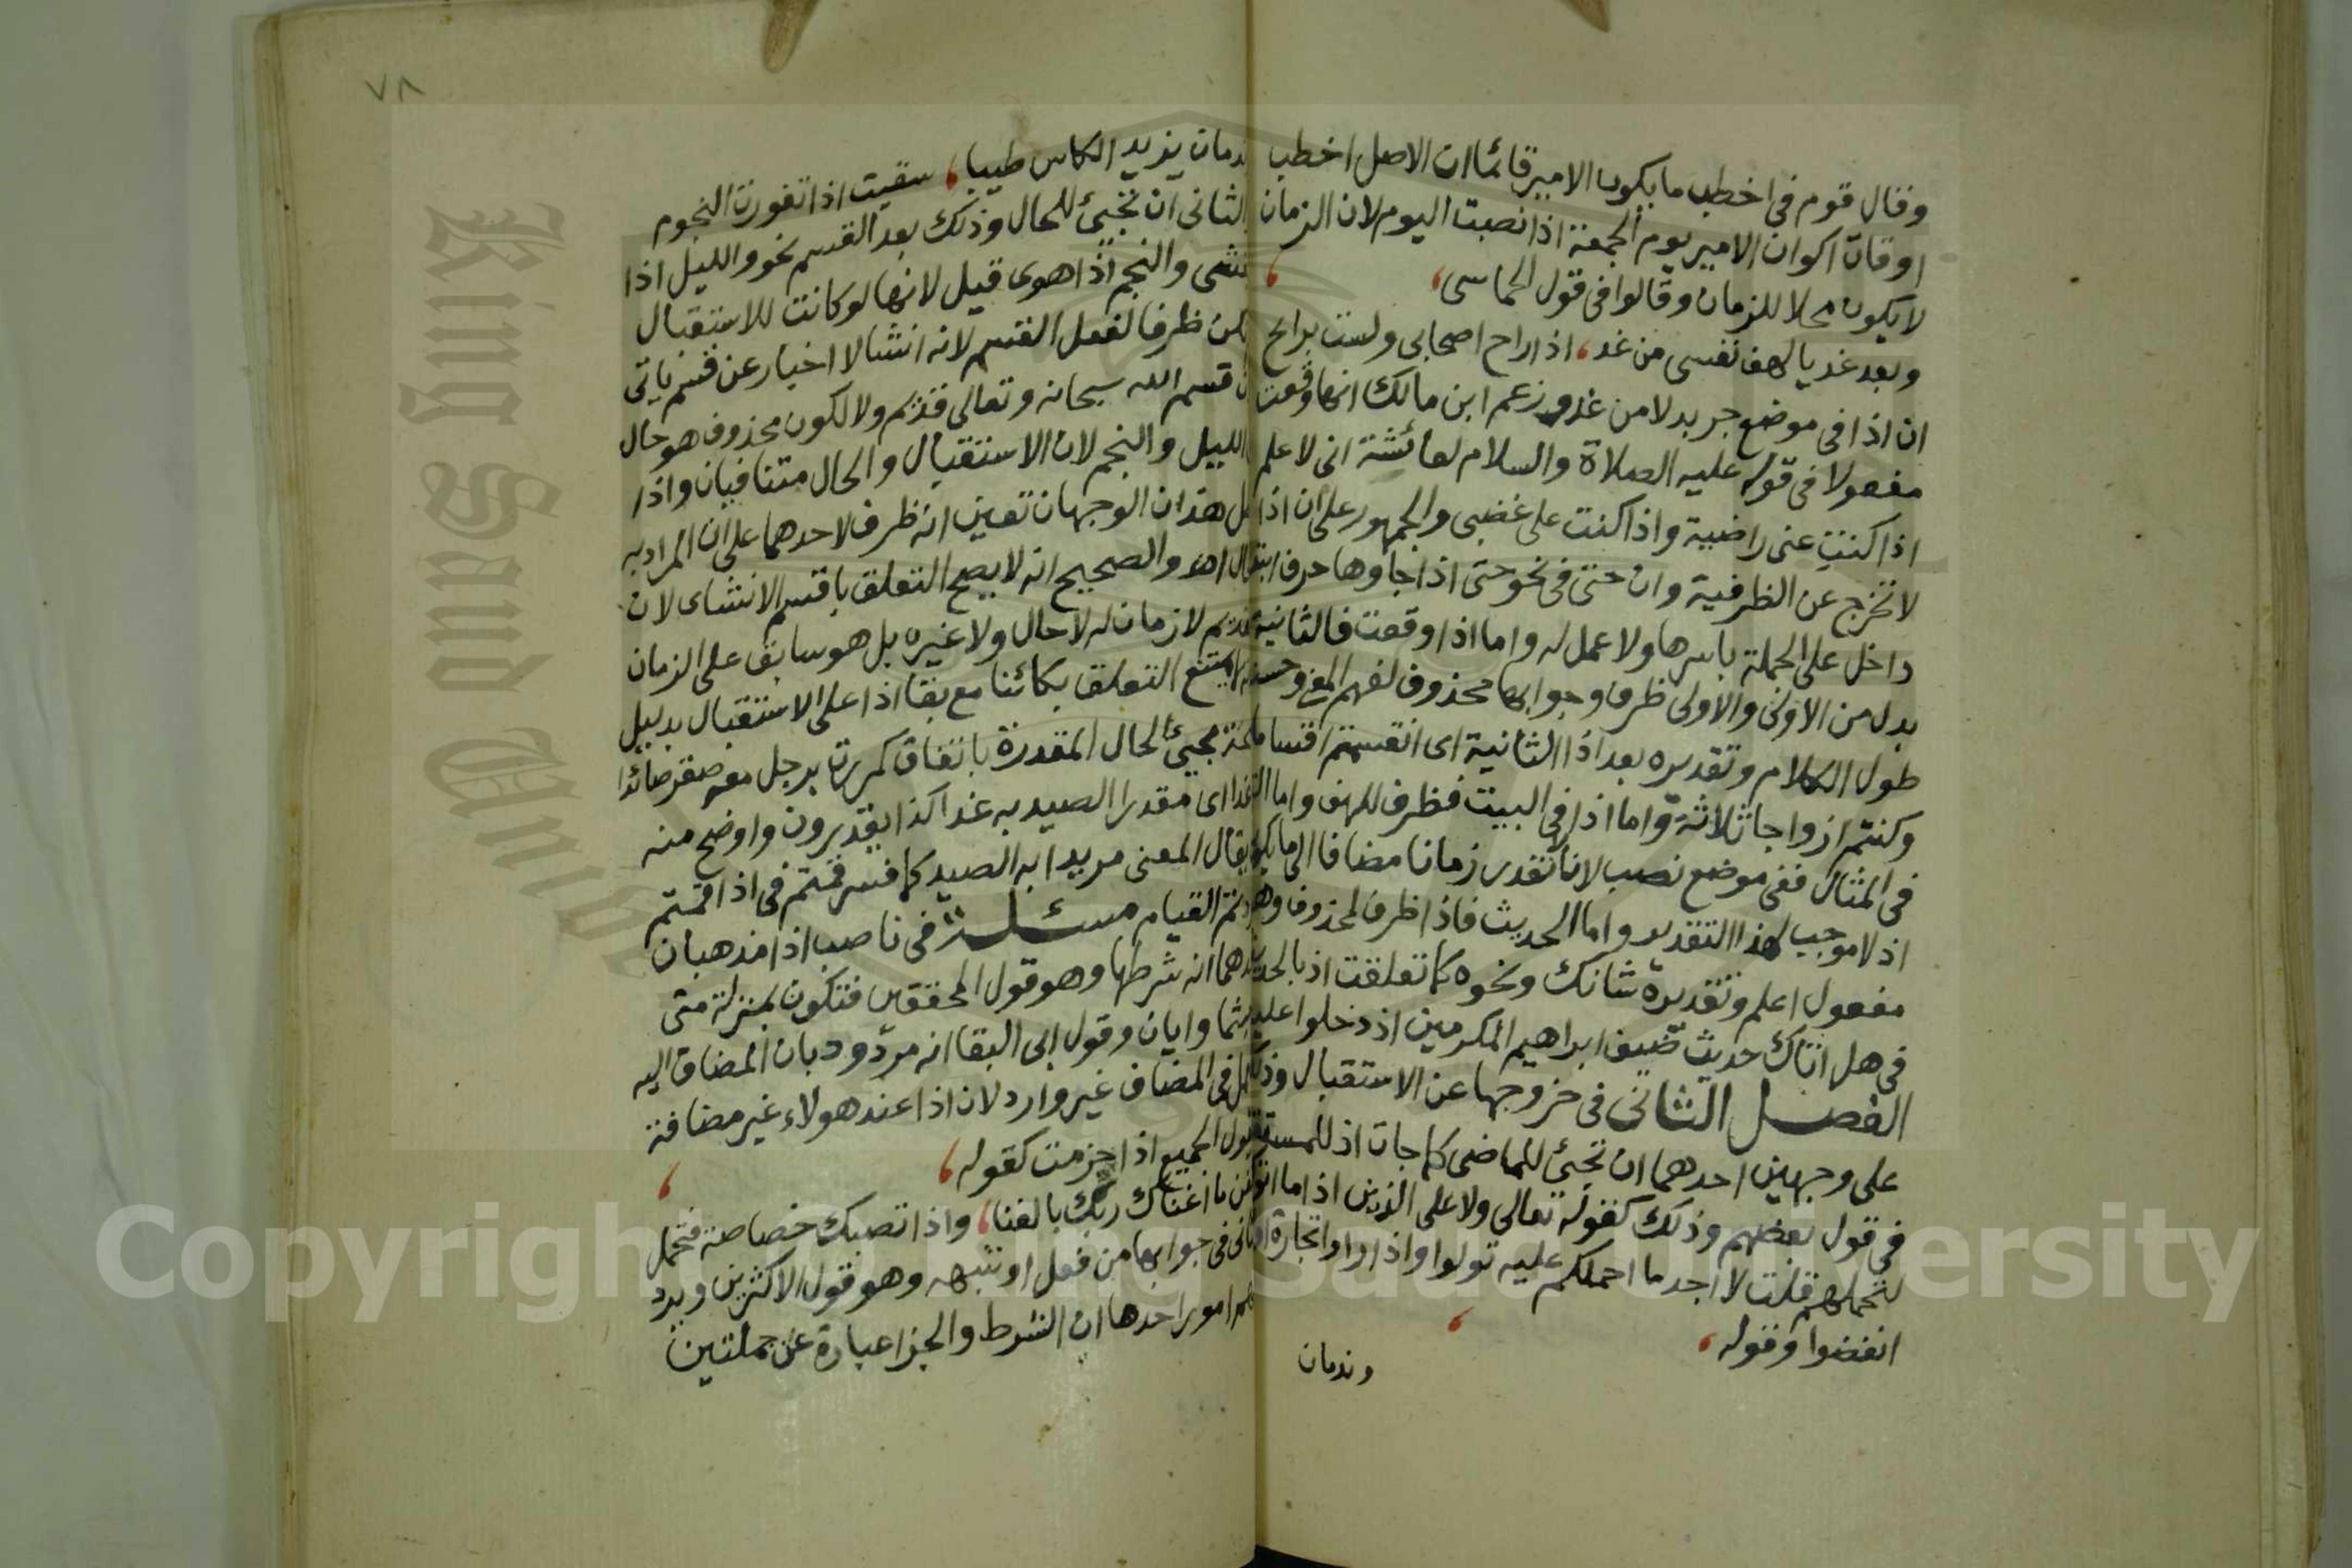 وقال قوم فى اخطب ما يكون الامير قائما ان الاصل اخطب
اوقات اكوان الامير يوم الجمعة اذا نصبت اليوم لان الزمان
لا يكون محلا للزمان وقالوا فى قول الحماسى،
وبعد غد يا لهف نفسى من غد، اذا راح اصحابى ولست برائح
ان اذا فى موضع جر بدلا من غد وزعم ابن مالك انها وقعت
مفعولا فى قوله عليه الصلاة والسلام لعائشة انى لاعلم
اذا كنت عنى راضية واذا كنت على غضبى والجمهور على ان اذا
لا تخرج عن الظرفية وان حتى فى نحو حتى اذا جاوها حرف ابتدا
داخل على الجملة باسرها ولا عمل له واما اذا وقعت فالثانية
بدل من الاولى والاولى ظرف وجوابها محذوف لفهم المعنى وحسنه
طول الكلام وتقديره بعد اذا الثانية اى انقسمتم اقساما
وكنتم ازواجا ثلاثة واما اذا فى البيت فظرف للهف واما التى
فى المثال ففى موضع نصب لانا نقدر زمانا مضافا الى ما يكون
اذ لا موجب لهذا التقدير واما الحديث فاذا ظرف لمحذوف وهو
مفعول اعلم وتقديره شانك ونحوه كما تعلقت اذ بالحديث
فى هل اتاك حديث ضيف ابراهيم المكرمين اذ دخلوا عليه
الفصل الثانى فى خروجها عن الاستقبال وذلك
على وجهين احدهما ان تجئ للماضى كما جات اذ للمستقبل
فى قول بعضهم وذلك كقوله تعالى ولا على الذين اذا ما اتوك
لتحملهم قلت لا اجد ما احملكم عليه تولوا واذا راوا تجارة او
انفضوا وقوله،
وندمان
ندمان يزيد الكاس طيبا، سقيت اذا تغورت النجوم
الثانى ان تجئ للحال وذلك بعد القسم نحو والليل اذا
يغشى والنجم اذا هوى قيل لانها لو كانت للاستقبال
لم تكن ظرفا لفعل القسم لانه انشا لا اخبار عن قسم ياتى
لان قسم الله سبحانه وتعالى قديم ولا لكون محذوف هو حال
الليل والنجم لان الاستقبال والحال متنافيان واذا
بطل هذان الوجهان تعين انه ظرف لاحدهما على ان المراد به
الحال اهـ والصحيح انه لا يصح التعلق باقسم الانشاى لان
القديم لا زمان له لا حال ولا غيره بل هو سابق على الزمان
لا يمتنع التعلق بكائنا مع بقا اذا على الاستقبال بدليل
صحة مجئ الحال المقدرة باتفاق كمررت برجل معه صقر صائدا
غدا اى مقدرا الصيد به غدا كذا يقدرون واوضح منه
يقال المعنى مريدا به الصيد كما فسر قمتم فى اذا قمتم
اردتم القيام مسئلة فى ناصب اذا مذهبان
احدهما انه شرطها وهو قول المحققين فتكون بمنزلة متى
حيثما وايان وقول ابى البقا انه مردود بان المضاف اليه
يعمل فى المضاف غير وارد لان اذا عند هولاء غير مضافة
يقول الجميع اذا جزمت كقوله،
استغن ما اغناك ربك بالغنا، واذا تصبك خصاصة فتحمل
الثانى فى جوابها من فعل او شبهه وهو قول الاكثرين ويرد
امور احدها ان الشرط والجزا عبارة عن جملتين
٧٨
King Saud
Copyright © King Saud University